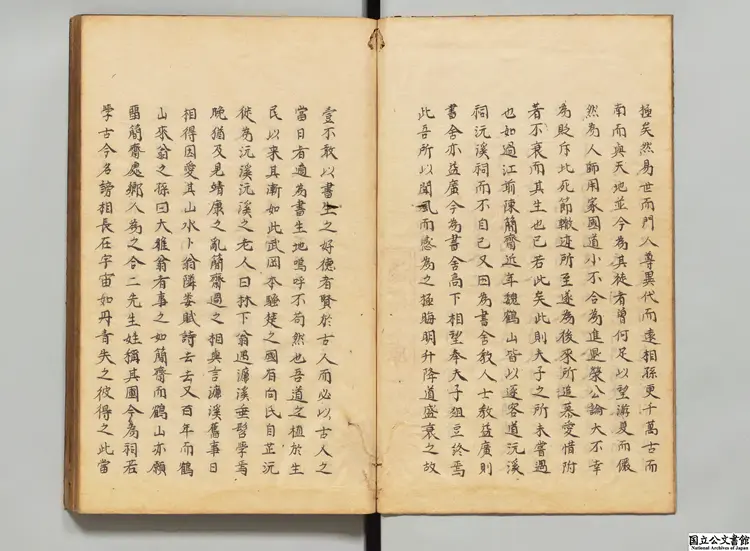 極矣然易世而門人尊異代而遠相孫更千萬古而
南而與天地並今為其徒者曾何足以望游夏而儼
然為人師用家國道小不合為進學榮公論大不幸
為貶斥此死節轍迹所至遂為後來所追慕愛惜附
若不衰而其生也已若此矣此則夫子之所未嘗遇
也如過江前陳簡齋近年魏鶴山皆以逐客道沅溪
祠沅溪祠而不自己又因為書舍教人士教益廣則
書舍亦益廣今為書舍高下相望奉夫子俎豆終焉
此吾所以聞風而感為之極晦明升降道盛衰之故
壹不敢以書生之好德者賢於古人而必以古人之
當日者適為書生地嗚呼不苟然也吾道之植於生
民以来其漸如此武岡本騷楚之國有向氏自芷沅
徙為沅溪沅溪之老人曰林下翁遇濂溪垂髫學焉
晚猶及見靖康之亂簡齋過之相與言濂溪舊事日
相得因愛其山水卜翁隣娄賦詩去去又百年而鶴
山來翁之孫曰大雅翁有事之如簡齋而鶴山亦願
畱簡齋處鄉人為之合二先生姓稱其圃今為祠若
學古今名謗相長在宇宙如丹青失之彼得之此當
国立公文書館
National Archives of Japan